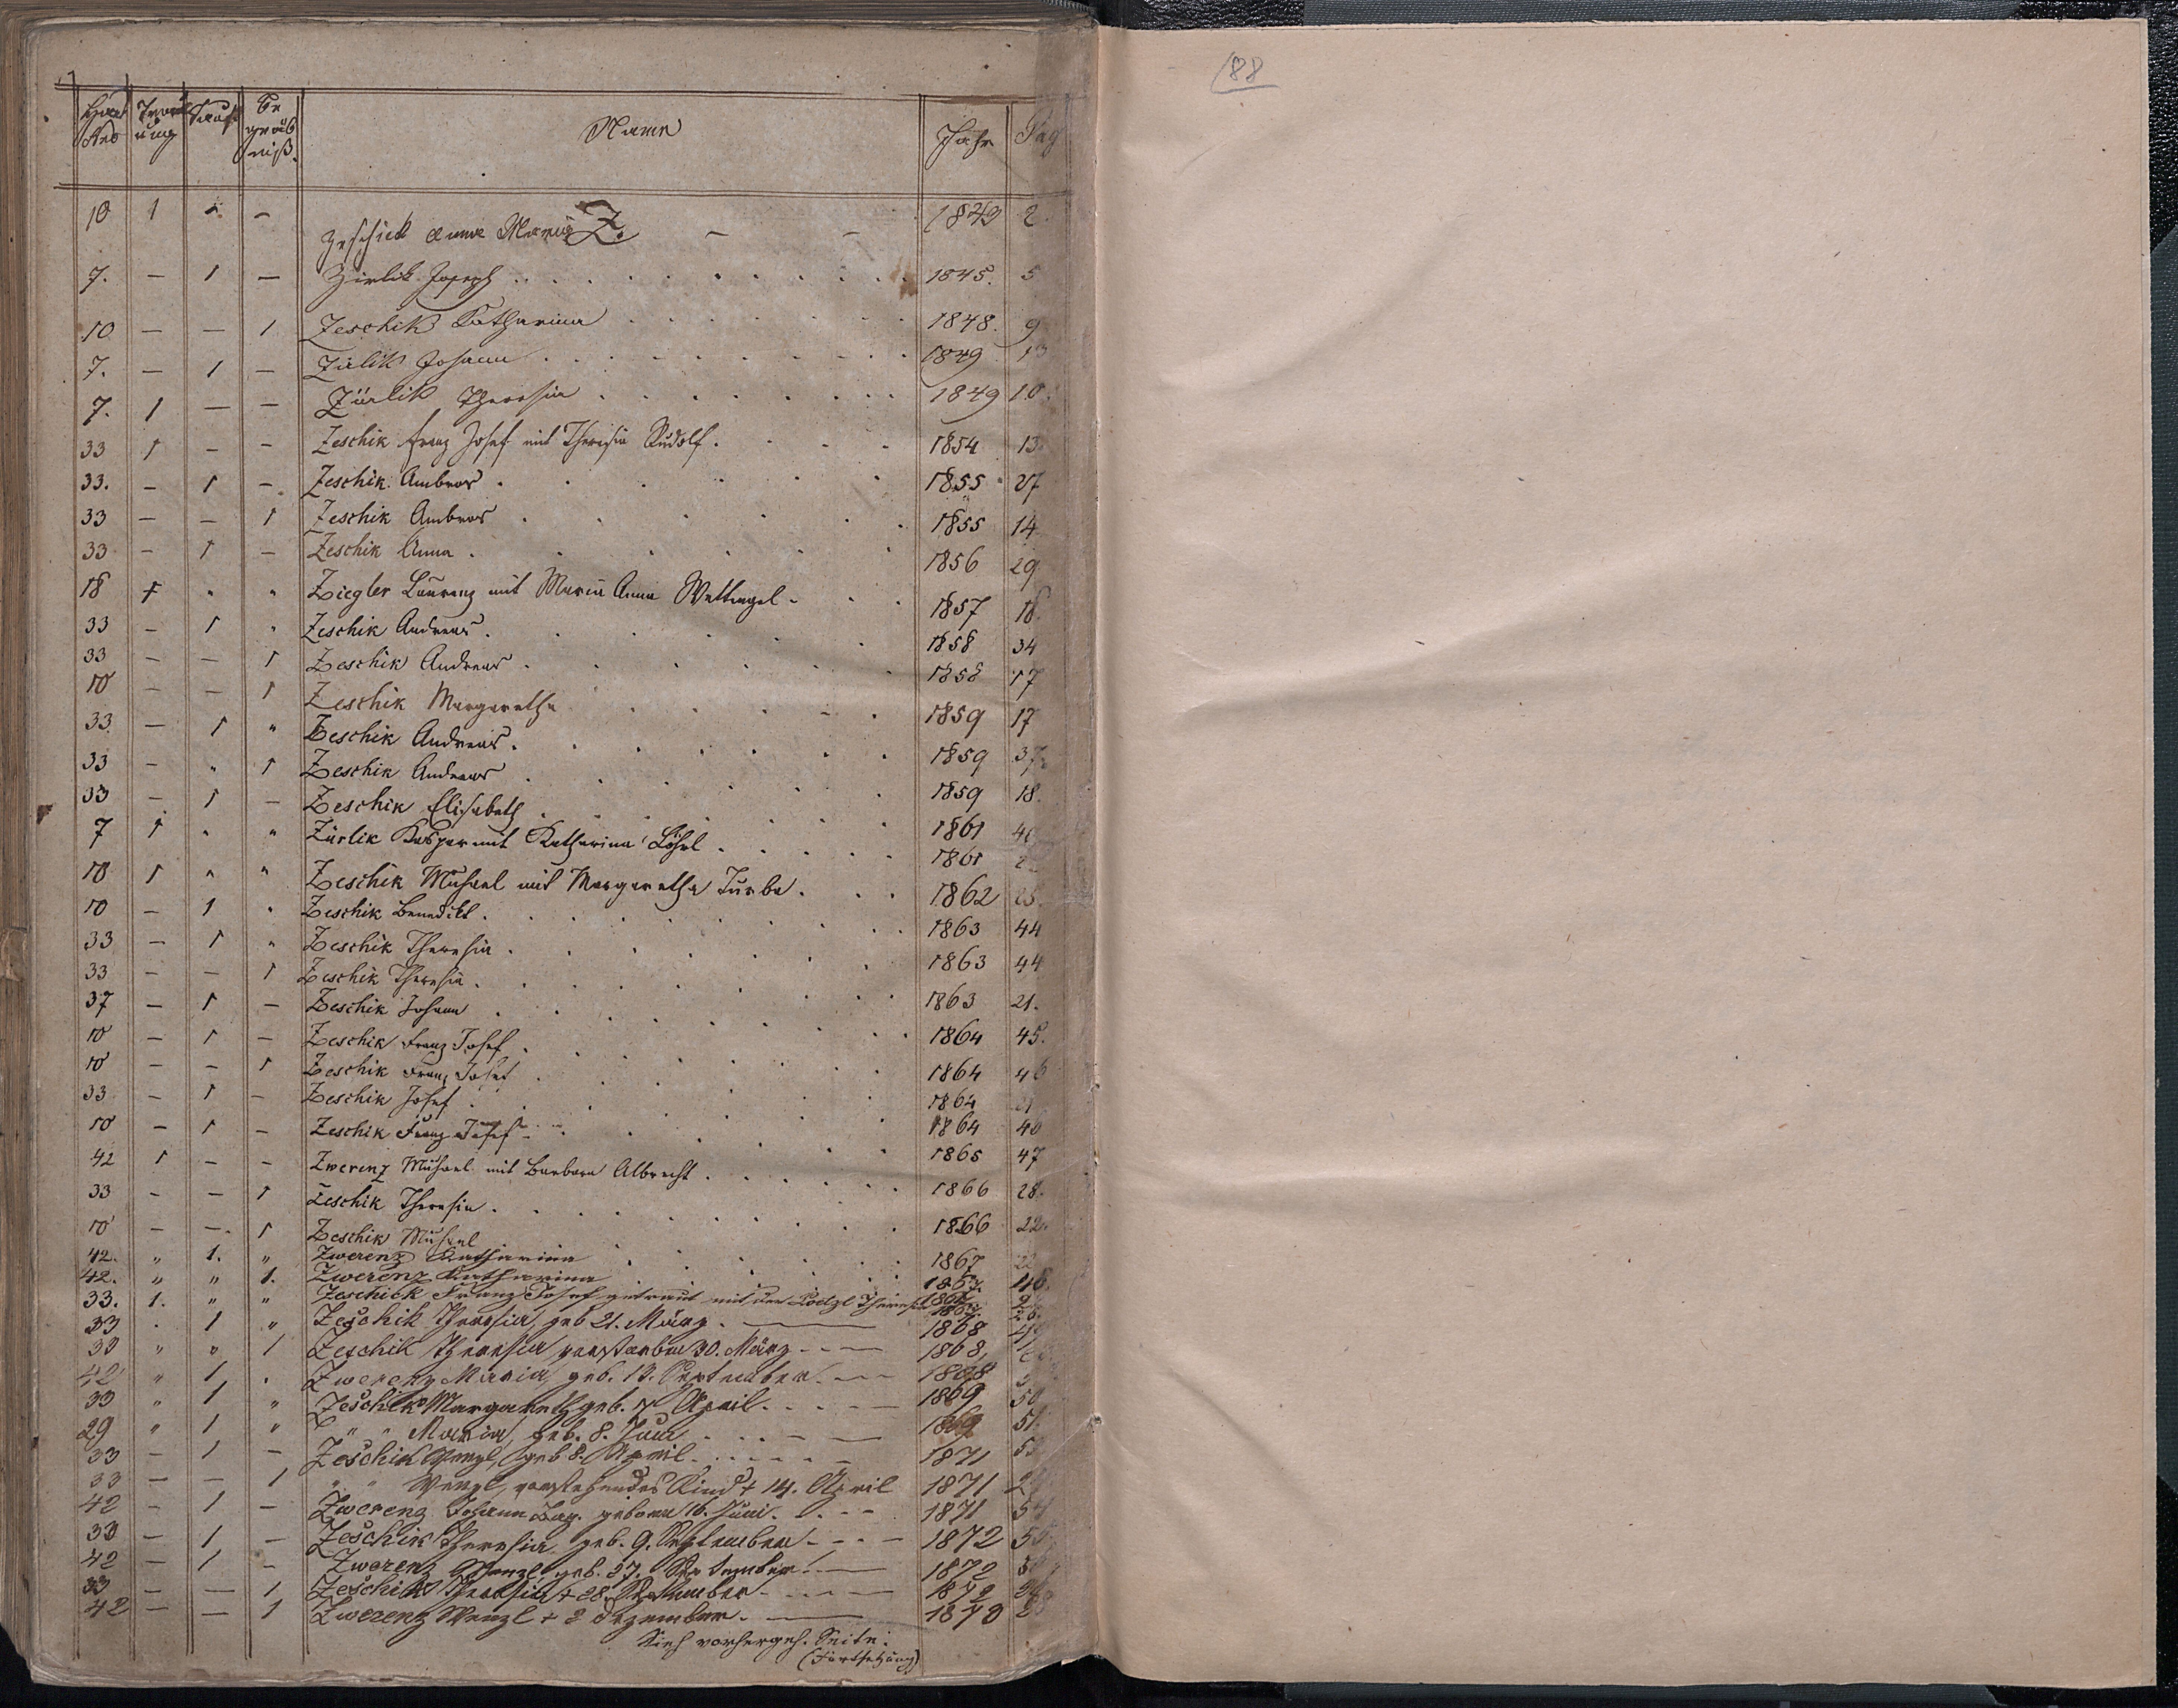 88
Haus Nro Trau ung Tauf Be gräb niß. Name Jahr Pag
Z.
10 1 - - Zeschick Anna Maria - - 1843 2
7. - 1 - Zirlik Joseph 1845. 5
10 - - 1 Zeschik Katharina 1848. 9
7. - 1 - Zürlik Johann 1849 13
7. 1 - - Zürlik Theresia 1849 10.
33 1 - - Zeschik Franz Josef mit Theresia Rudolf. 1854 13.
33. - 1 - Zeschik Ambros 1855 27
33 - - 1 Zeschik Ambros 1855 14.
33 - 1 - Zeschik Anna. 1856 29
18 1 " " Ziegler Laurenz mit Maria Anna Wettengel 1857 16.
33 - 1 " Zeschik Andreas. 1858 34
33 - - 1 Zeschik Andreas. 1858 17
10 - - 1 Zeschik Margaretha 1859 17
33 - 1 " Zeschik Andreas. 1859 37.
33 - " 1 Zeschik Andreas 1859 18.
33 - 1 - Zeschik Elisabeth 1861
7 1 " " Zürlik Kaspar mit Katharina 1861
10 1 " " Zeschik Michael mit Margaretha Turba. 1862 25.
10 - 1 " Zeschik Benedikt. 1863 44
33 - 1 " Zeschik Theresia. 1863 44
33 - - 1 Zeschik Theresia. 1863 21.
37 - 1 - Zeschik Johann 1864 45.
10 - 1 - Zeschik Franz Josef. 1864 46
10 - - 1 Zeschik Franz Josef 1864 21
33 - 1 - Zeschik Josef 1864 46
10 - 1 - Zeschik Franz Josef 1865 47
42 1 - - Zwerenz Michael mit Barbara Albrecht. 1866 28.
33 - - 1 Zeschik Theresia. 1866 22.
10 - - 1 Zeschik Michael 1867 22
42. " 1. " Zwerenz Katharina 1867.
42. " " 1. Zwerenz Katharina 1867.
33. 1. " " Zeschick Franz Josef getraut mit der Theresia 1867.
33 . 1 " Zeschik Theresia, geb 21. März. 1868
33 " " 1 Zeschik Theresia verstorben 30. März 1868,
42 " 1 . Zwerenz Maria, geb. 13. September. 1868
33 " 1 " Zeschik Margareth geb. 7 April. 1869 50
29 " 1 " " " Maria, geb. 8. Juni 1869 51.
33 - 1 - Zeschik Wenzl, geb 8. April. 1871 53
33 - - 1 " " Wenzl, vorstehendes Kind + 14. April 1871
42 - 1 - Zwerenz Johann Bap. geboren 16. Juni. 1871 54
33 - 1 - Zeschik Theresia geb. 9. September 1872
42 - 1 - Zwerenz Wenzl, geb. 27. September. 1872
33 - - 1 Zeschik Theresia + 28. September 1872
42 - - 1 Zwerenz Wenzl + 2 Dezember. 1873
Sieh vorhergeh. Seite.
(Fortsetzung)